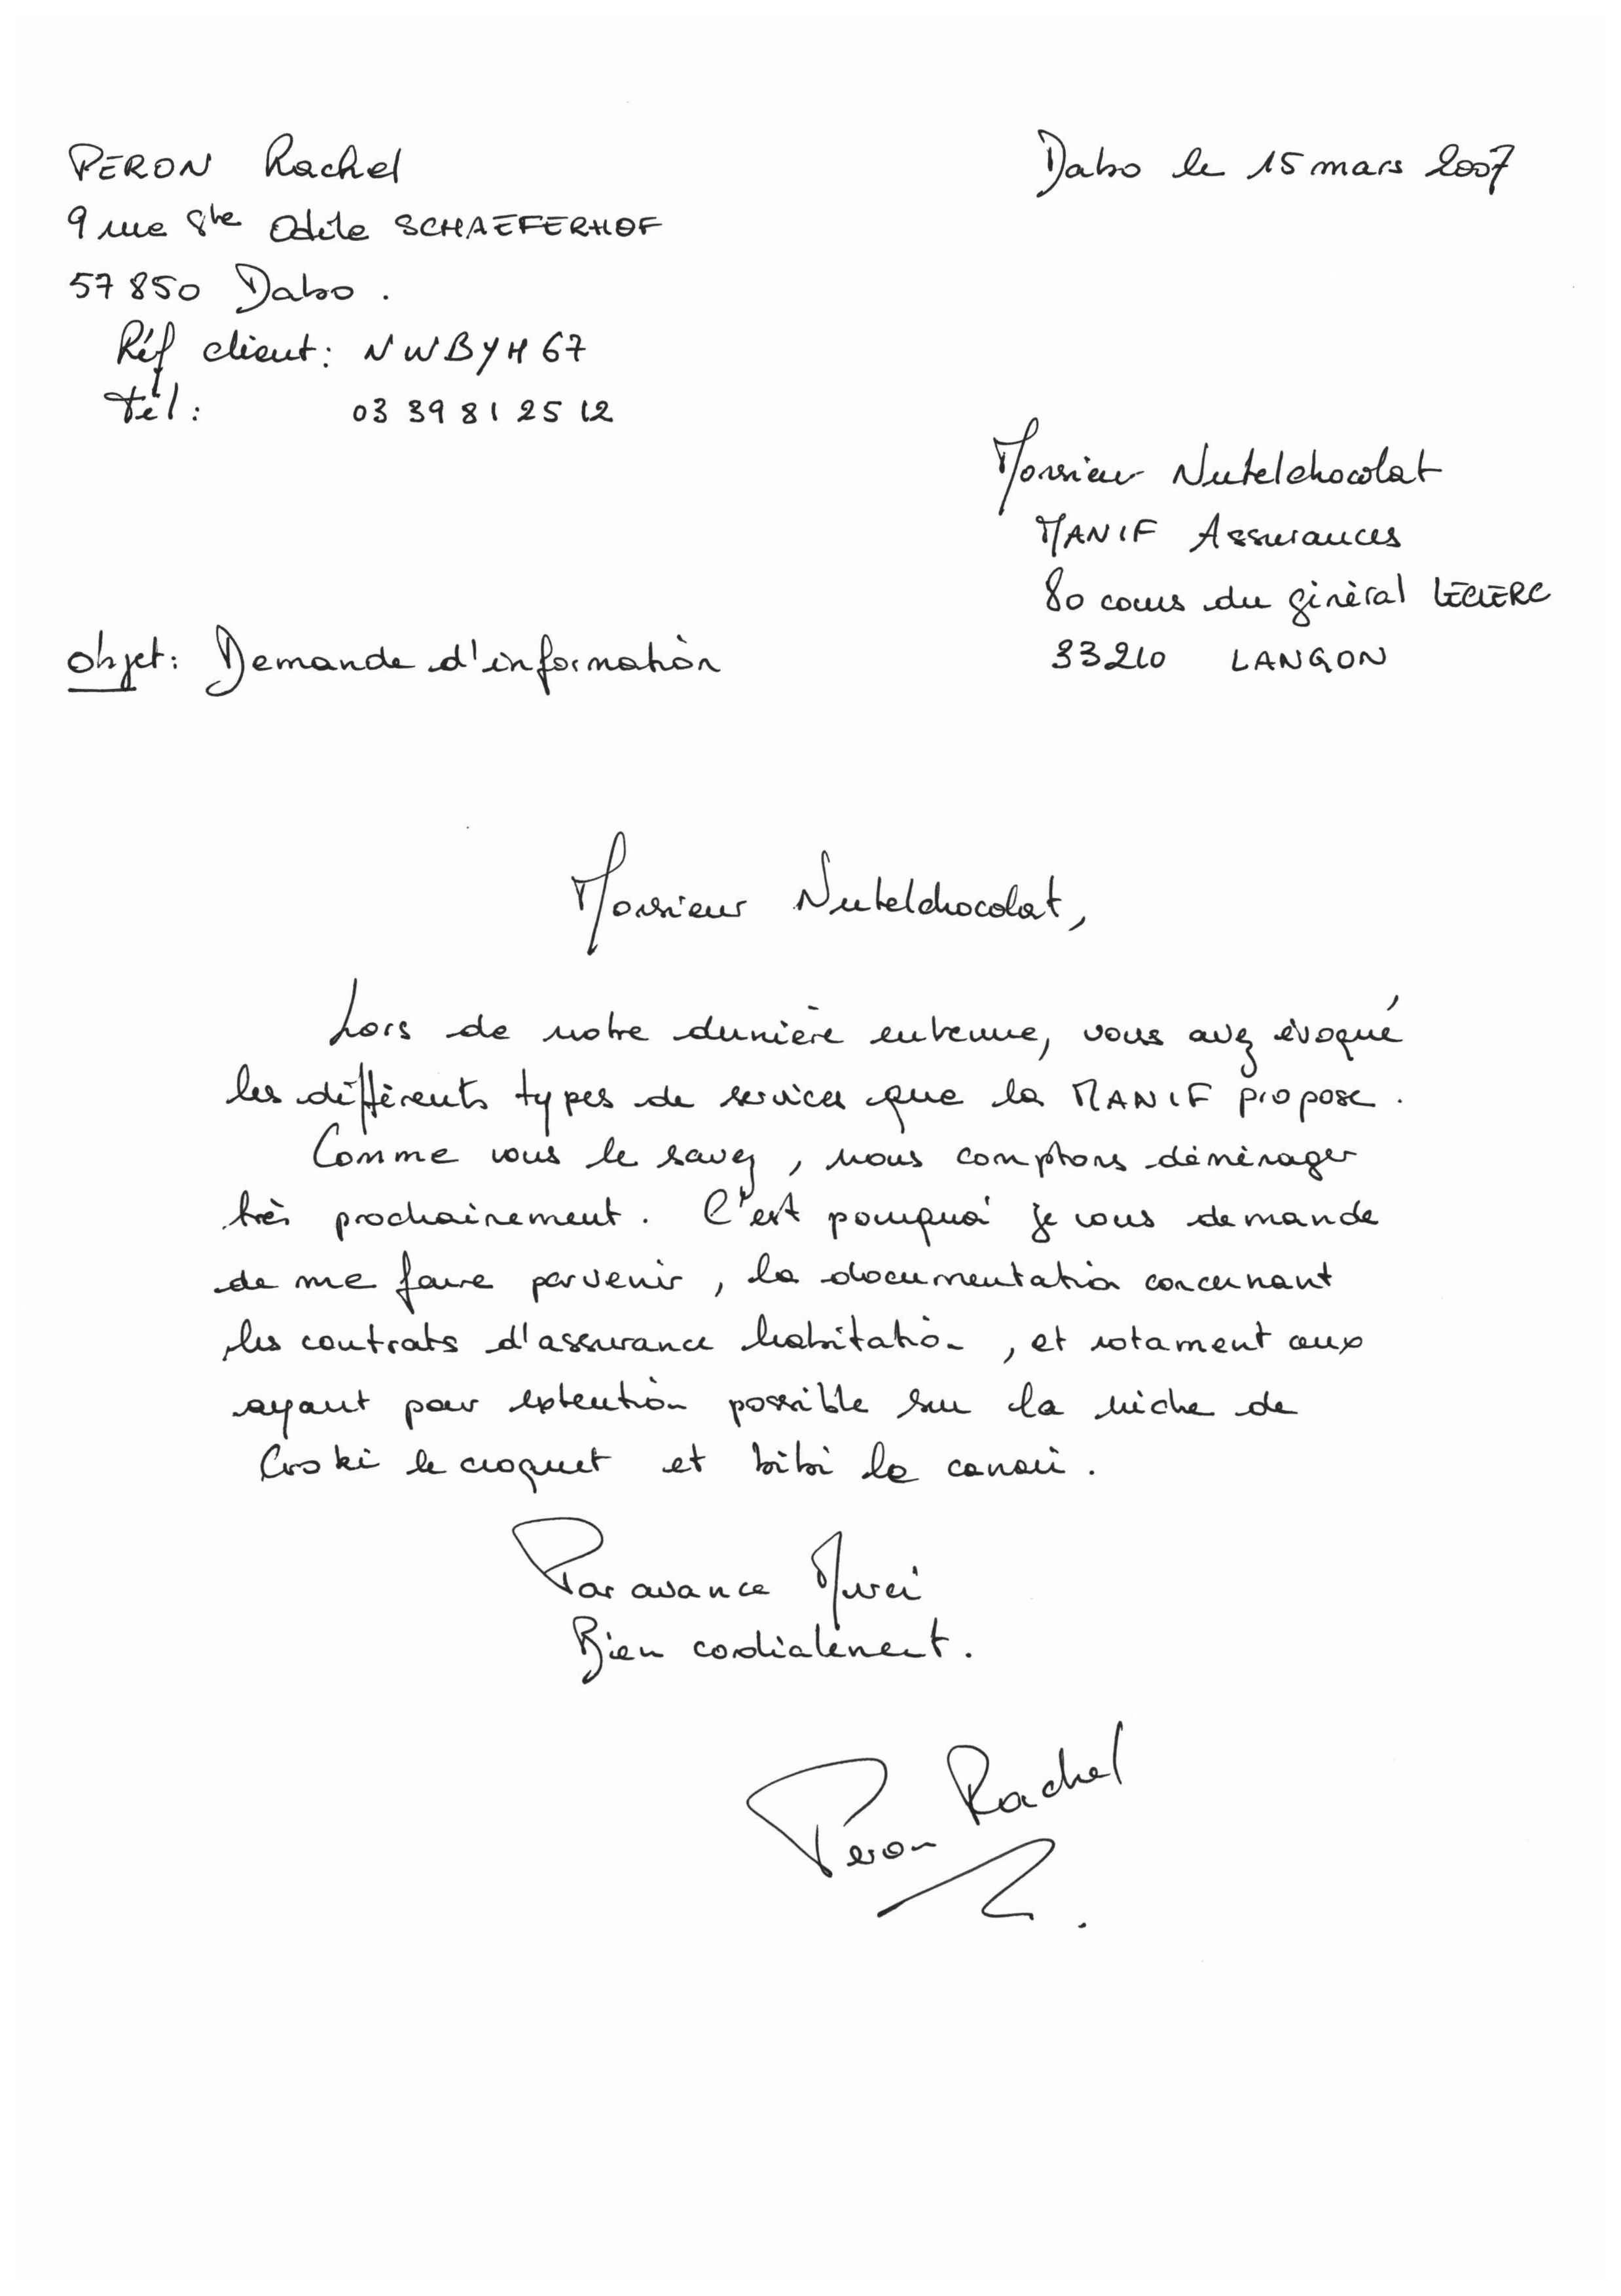 PERON Rachel
9 rue Ste Odile SCHAEFERHOF
57850 Dabo.
Réf client: NWBYH67
Tél: 03 39 81 25 12
Dabo le 15 mars 2007
Monsieur Nutelchocolat
MANIF Assurances
80 cours du général LECLERC
33210 LANGON
objet: Demande d'information
Monsieur Nutelchocolat,
Lors de notre dernière entrevue, vous avez évoqué
les différents types de services que la MANIF propose.
Comme vous le savez, nous comptons déménager
très prochainement. C'est pourquoi je vous demande
de me faire parvenir, la documentation concernant
les contrats d'assurance habitation, et notament ceux
ayant pour extention possible sur la niche de
Croki le croquet et bibi le canari.
Par avance Merci
Bien cordialement.
Peron Rachel